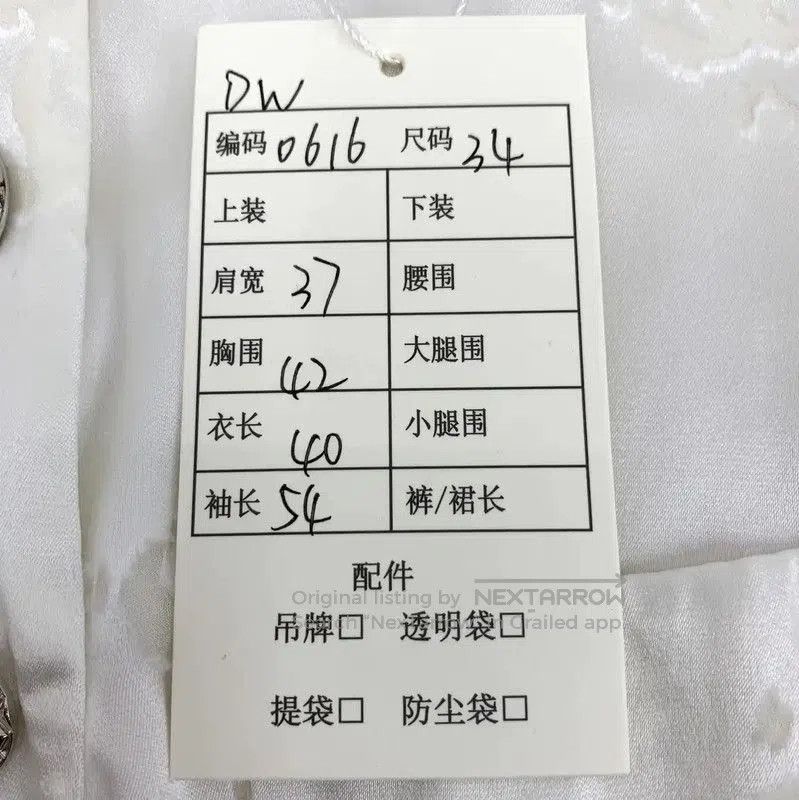 DW
编码 0616 尺码 34
上装 下装
肩宽 37 腰围
胸围 42 大腿围
衣长 40 小腿围
袖长 54 裤/裙长
配件
Original listing by NEXTARROW
吊牌□ 透明袋□
Grailed app
提袋□ 防尘袋□